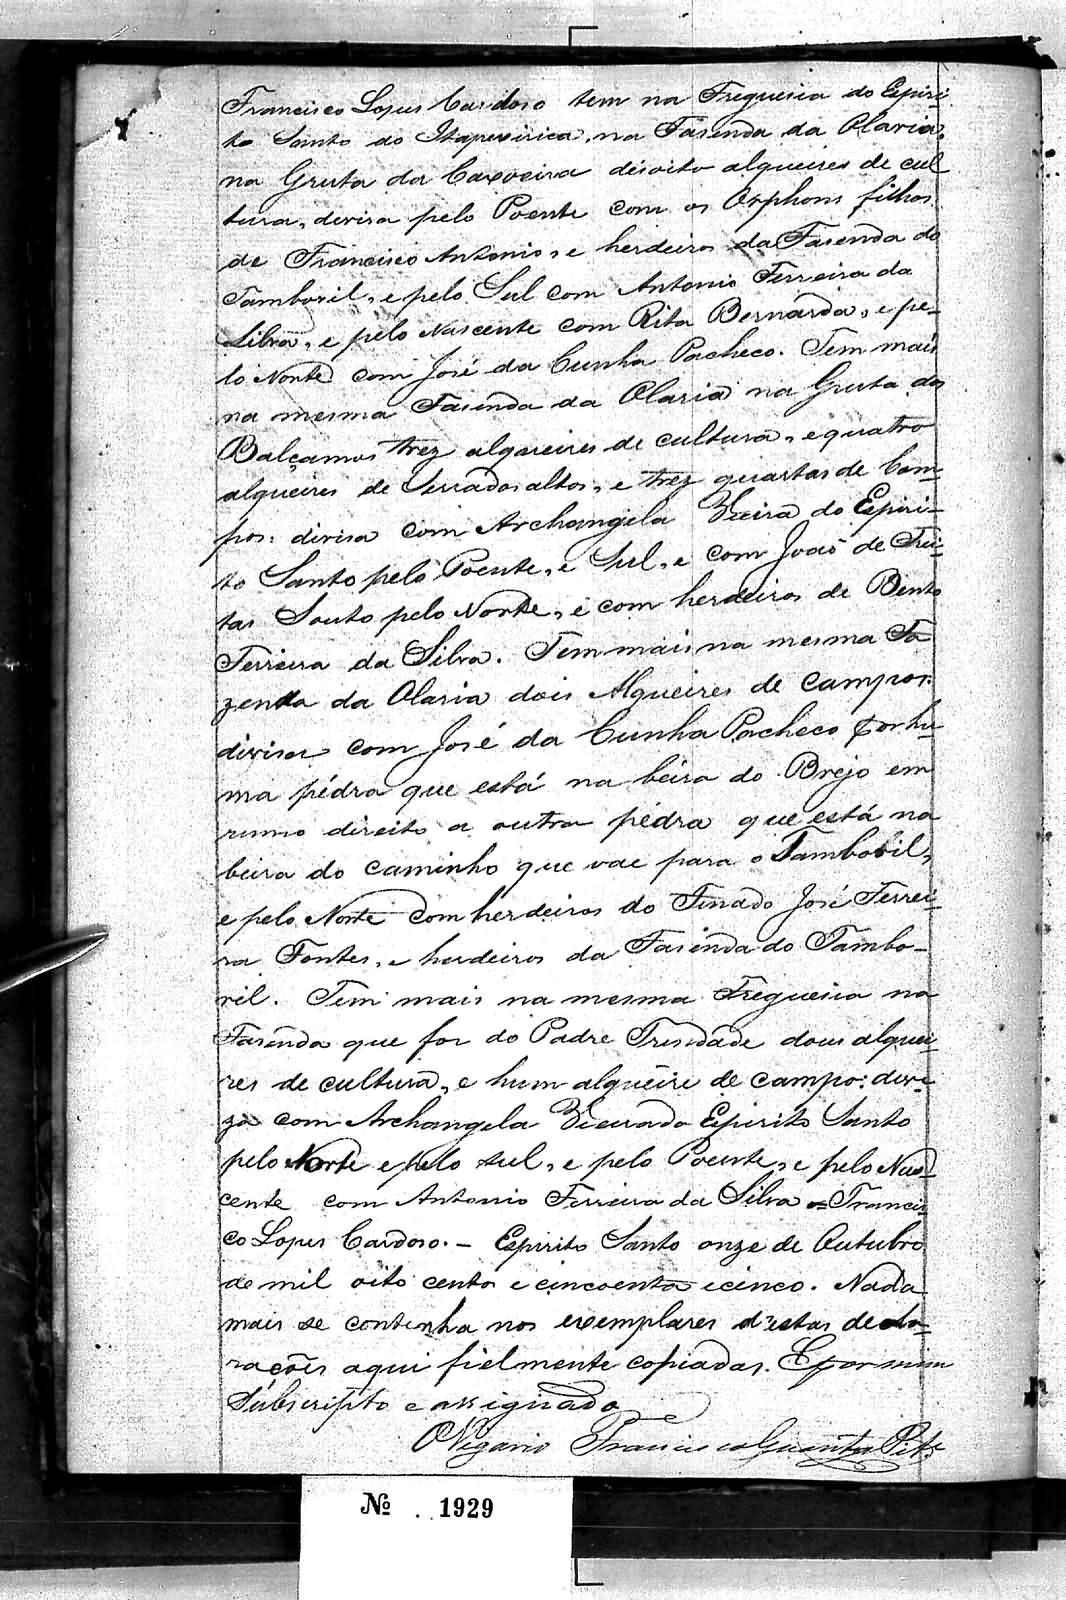 Francisco Lopes Cardoso tem na Freguesia do Espiri-
to Santo do Itapecirica, na Fasenda da Olaria,
na Gruta da Caxoeira desoito alqueires de cul
tura, devisa pelo Poente com os Orphons filhos
de Francisco Antonio, e herdeiros da Fasenda do
Tamboril, e pelo Sul com Antonio Ferreira da
Silva, e pelo Nascente com Rita Bernarda, e pe-
lo Norte com José da Cunha Pacheco. Tem mais
na mesma Fasenda da Olaria na Gruta dos
Balçamos trez alqueires de cultura, e quatro
alqueires de Serrados altos, e trez quartas de Cam-
pos: divisa com Archangela Vieira do Espiri-
to Santo pelo Poente, e Sul, e com João de Frei-
tas Souto pelo Norte, e com herdeiros de Bento
Ferreira da Silva. Tem mais na mesma Fa
zenda da Olaria dois Alqueires de Campos:
divisa com José da Cunha Pacheco por hu-
ma pédra que está na beira do Brejo em
rumo direito a outra pédra que está na
beira do caminho que vae para o Tamboril,
e pelo Norte com herdeiros do Finado José Ferrei-
ra Fontes, e herdeiros da Fasenda do Tambo-
ril. Tem mais na mesma Freguesia na
Fasenda que foi do Padre Trindade dous alquei-
res de cultura, e hum alqueire de campo: devi-
za com Archangela Vieira do Espirito Santo
pelo Norte e pelo sul, e pelo Poente, e pelo Nas-
cente com Antonio Ferreira da Silva = Francis-
co Lopes Cardoso. - Espirito Santo onze de Outubro
de mil oito cento e cincoenta e cinco. Nada
mais se continha nos exemplares d'estas decla-
rações aqui fielmente copiadas. E por mim
Subscripto e assignado
O Vigario Francisco Guarita Pit.
Nº 1929